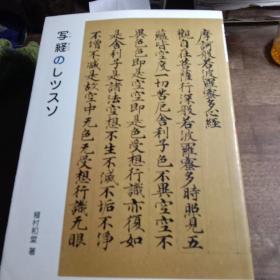 写経のレッスン
植村和堂 著
摩訶般若波羅蜜多心経
觀自在菩薩行深般若波羅蜜多時照見五
蘊皆空度一切苦厄舍利子色不異空空不
異色色即是空空即是色受想行識亦復如
是舍利子是諸法空想不生不滅不垢不淨
不增不減是故空中无色无受想行識无眼